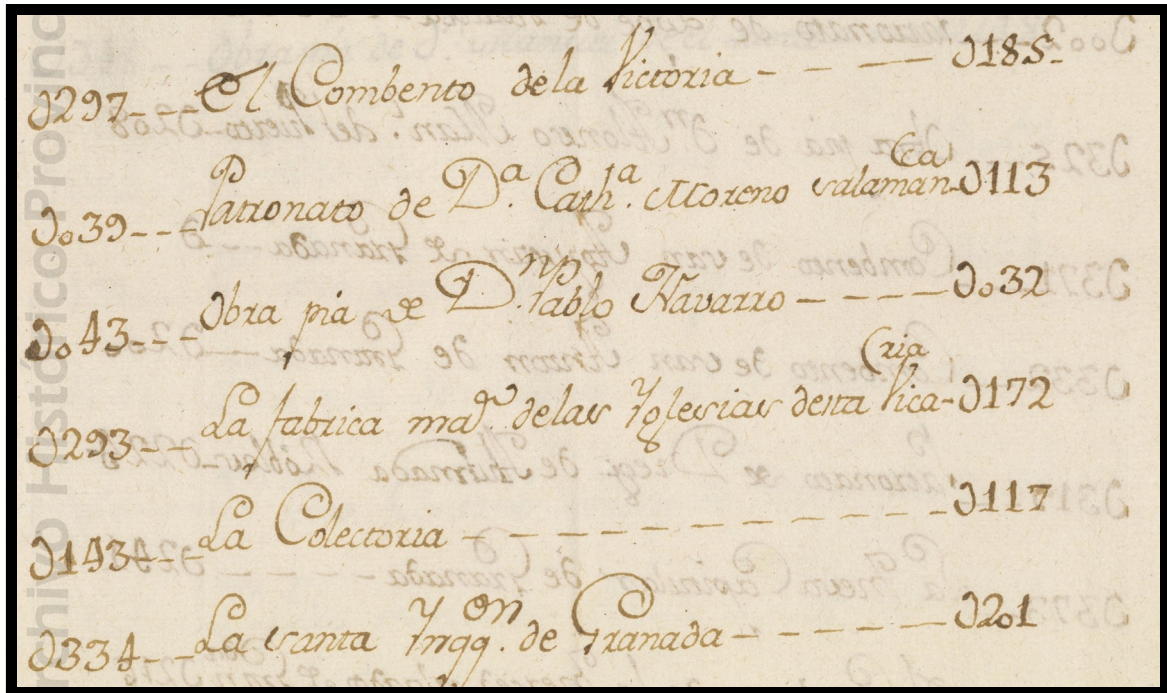 Archivo Histórico Provinc
D297 - - - El Combento dela Victoria - - - - D185.
Do39 - - - Patronato de Dª. Cathª. Moreno salamanca - D113
Do43 - - - Obra pia de Dⁿ. Pablo Navarro - - - - - Do32
D293 - - - La fabrica maᵒʳ. delas Yglesias desta Vicaria - D172
- - - La Colectoria - - - - - - - - - D117
D334 - - - La santa Ynqqᵒⁿ. de Granada - - - - - - D2o1